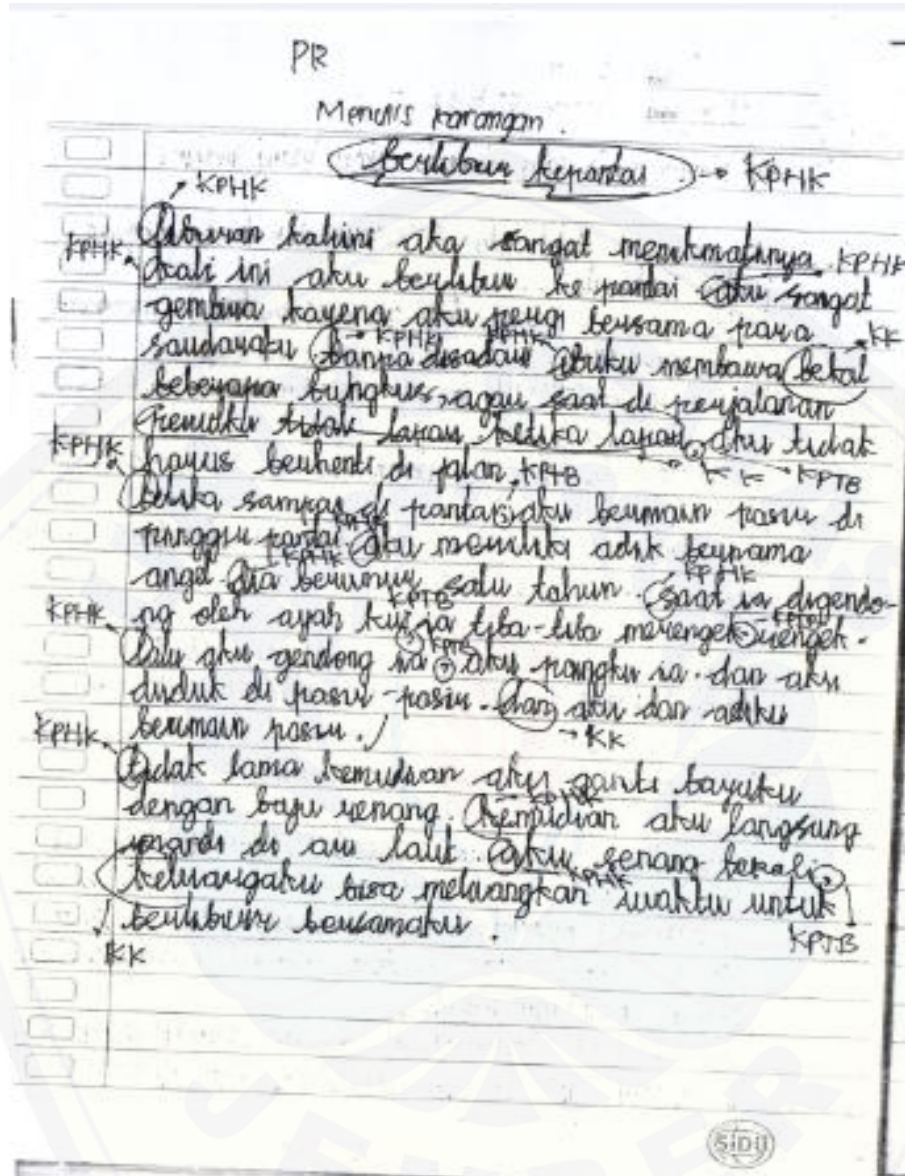 PR
Menulis karangan.
berlibur kepantai → KPHK
KPHK
liburan kaliini aku sangat menikmatinya KPHK
KPHK kali ini aku berlibur ke pantai aku sangat
gembira karena aku pergi bersama para
KPHK KPHK KK
saudaraku tanpa disadari ibuku membawa bekal
beberapa bungkus, agar saat di perjalanan
perutku tidak lapar ketika lapar, aku tidak
KPHK KK KPTB
harus berhenti di jalan. KPTB
ketika sampai di pantai, aku bermain pasir di
pinggir pantai aku memiliki adik bernama
KPHK KPHK
angel. dia berumur satu tahun. saat ia digendo-
KPHK KPTB
ng oleh ayah ku, ia tiba-tiba merengek-rengek.
KPTB
lalu aku gendong ia, aku pangku ia. dan aku
duduk di pasir-pasir. dan aku dan adiku
bermain pasir. → KK
KPHK tidak lama kemudian aku ganti bajuku
KPHK
dengan baju renang. kemudian aku langsung
mandi di air laut. aku senang bekali,
KPHK
keluargaku bisa meluangkan waktu untuk
berlibur bersamaku.
KK KPTB
SIDU